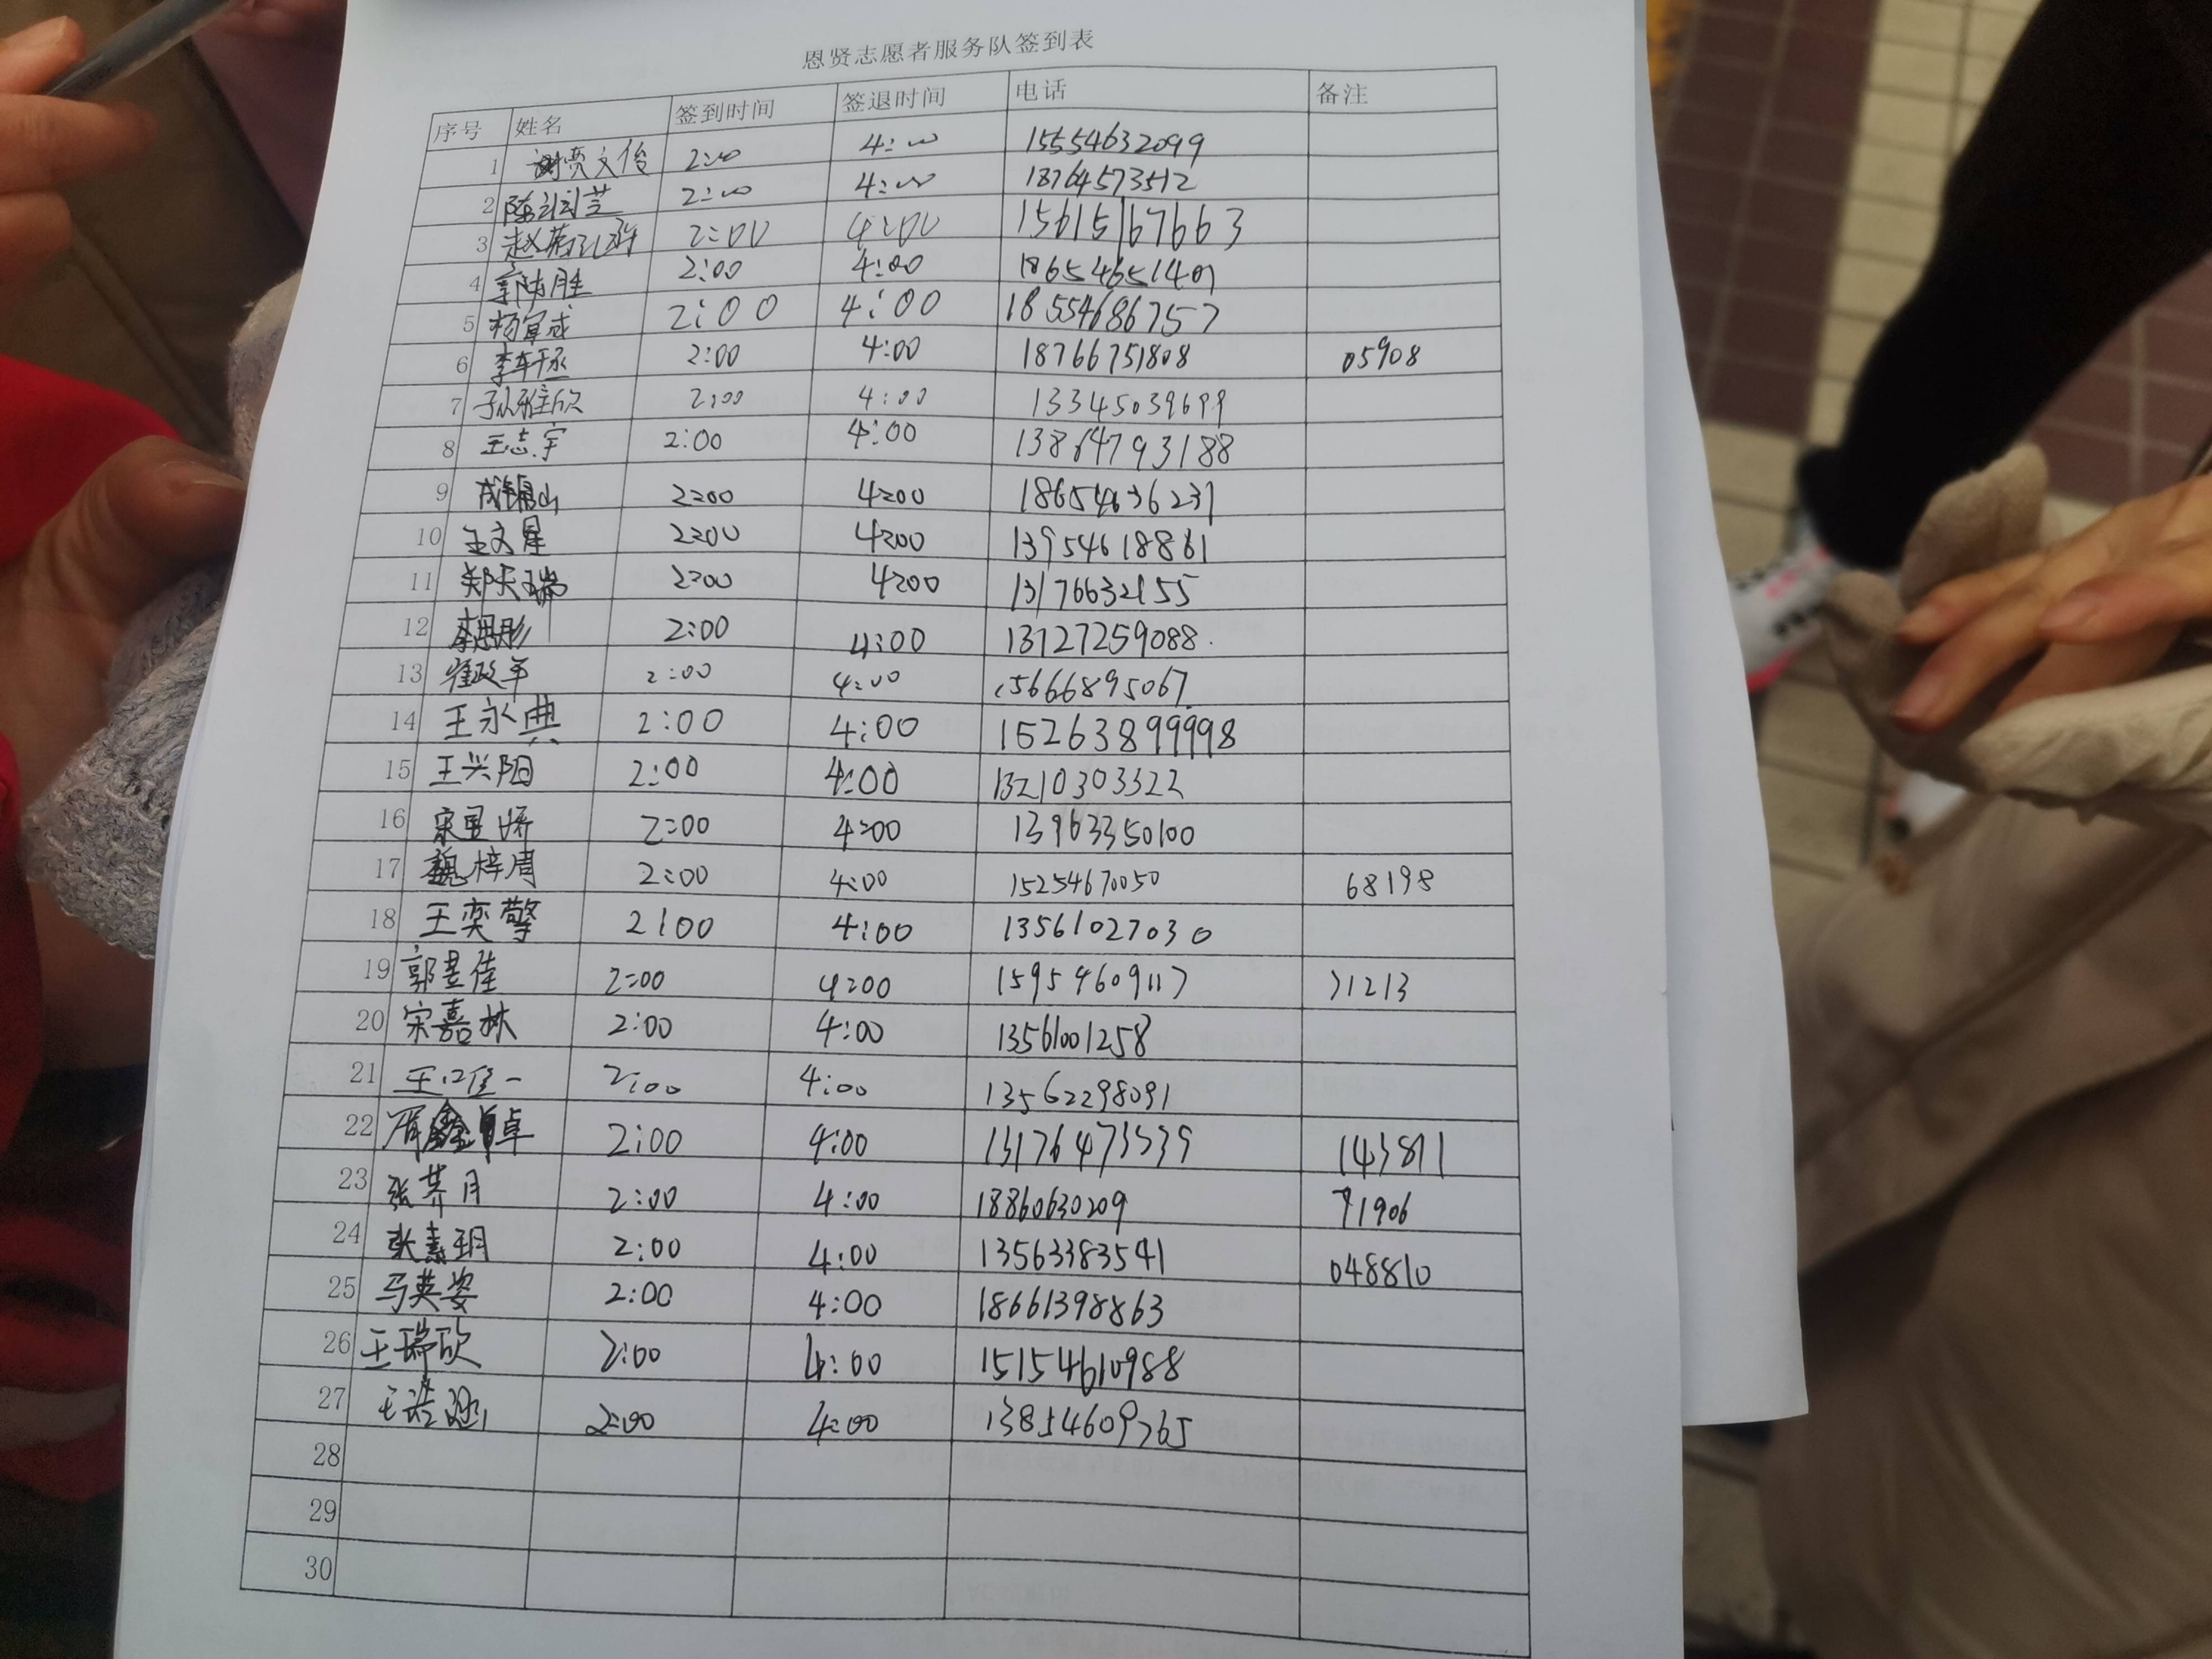 恩贤志愿者服务队签到表
序号 姓名 签到时间 签退时间 电话 备注
1 贾文俊 2:00 4:00 15554632099
2 陈 芸 2:00 4:00 18764573512
3 赵 2:00 4:00 15615167663
4 2:00 4:00 18654651401
5 杨宜成 2:00 4:00 18554686757
6 李轩丞 2:00 4:00 18766751808 05908
7 孙雅欣 2:00 4:00 13345039699
8 王志宇 2:00 4:00 13864793188
9 成锦山 2:00 4:00 18654636237
10 王文星 2:00 4:00 13954618861
11 郑天瑞 2:00 4:00 13176632155
12 李思彤 2:00 4:00 13727259088
13 崔政平 2:00 4:00 15666895067
14 王永典 2:00 4:00 15263899998
15 王兴阳 2:00 4:00 13210303322
16 宋昱娇 2:00 4:00 13963350100
17 魏梓周 2:00 4:00 15254670050 68198
18 王奕擎 2:00 4:00 13561027030
19 郭昱佳 2:00 4:00 15954609117 71213
20 宋嘉林 2:00 4:00 13561001258
21 王 一 2:00 4:00 13562298091
22 鑫卓 2:00 4:00 13176473539 143811
23 张荞月 2:00 4:00 18860630209 71906
24 张素玥 2:00 4:00 13563383541 048810
25 马英姿 2:00 4:00 18661398863
26 王瑞欣 2:00 4:00 15154610988
27 王 2:00 4:00 13854609765
28
29
30